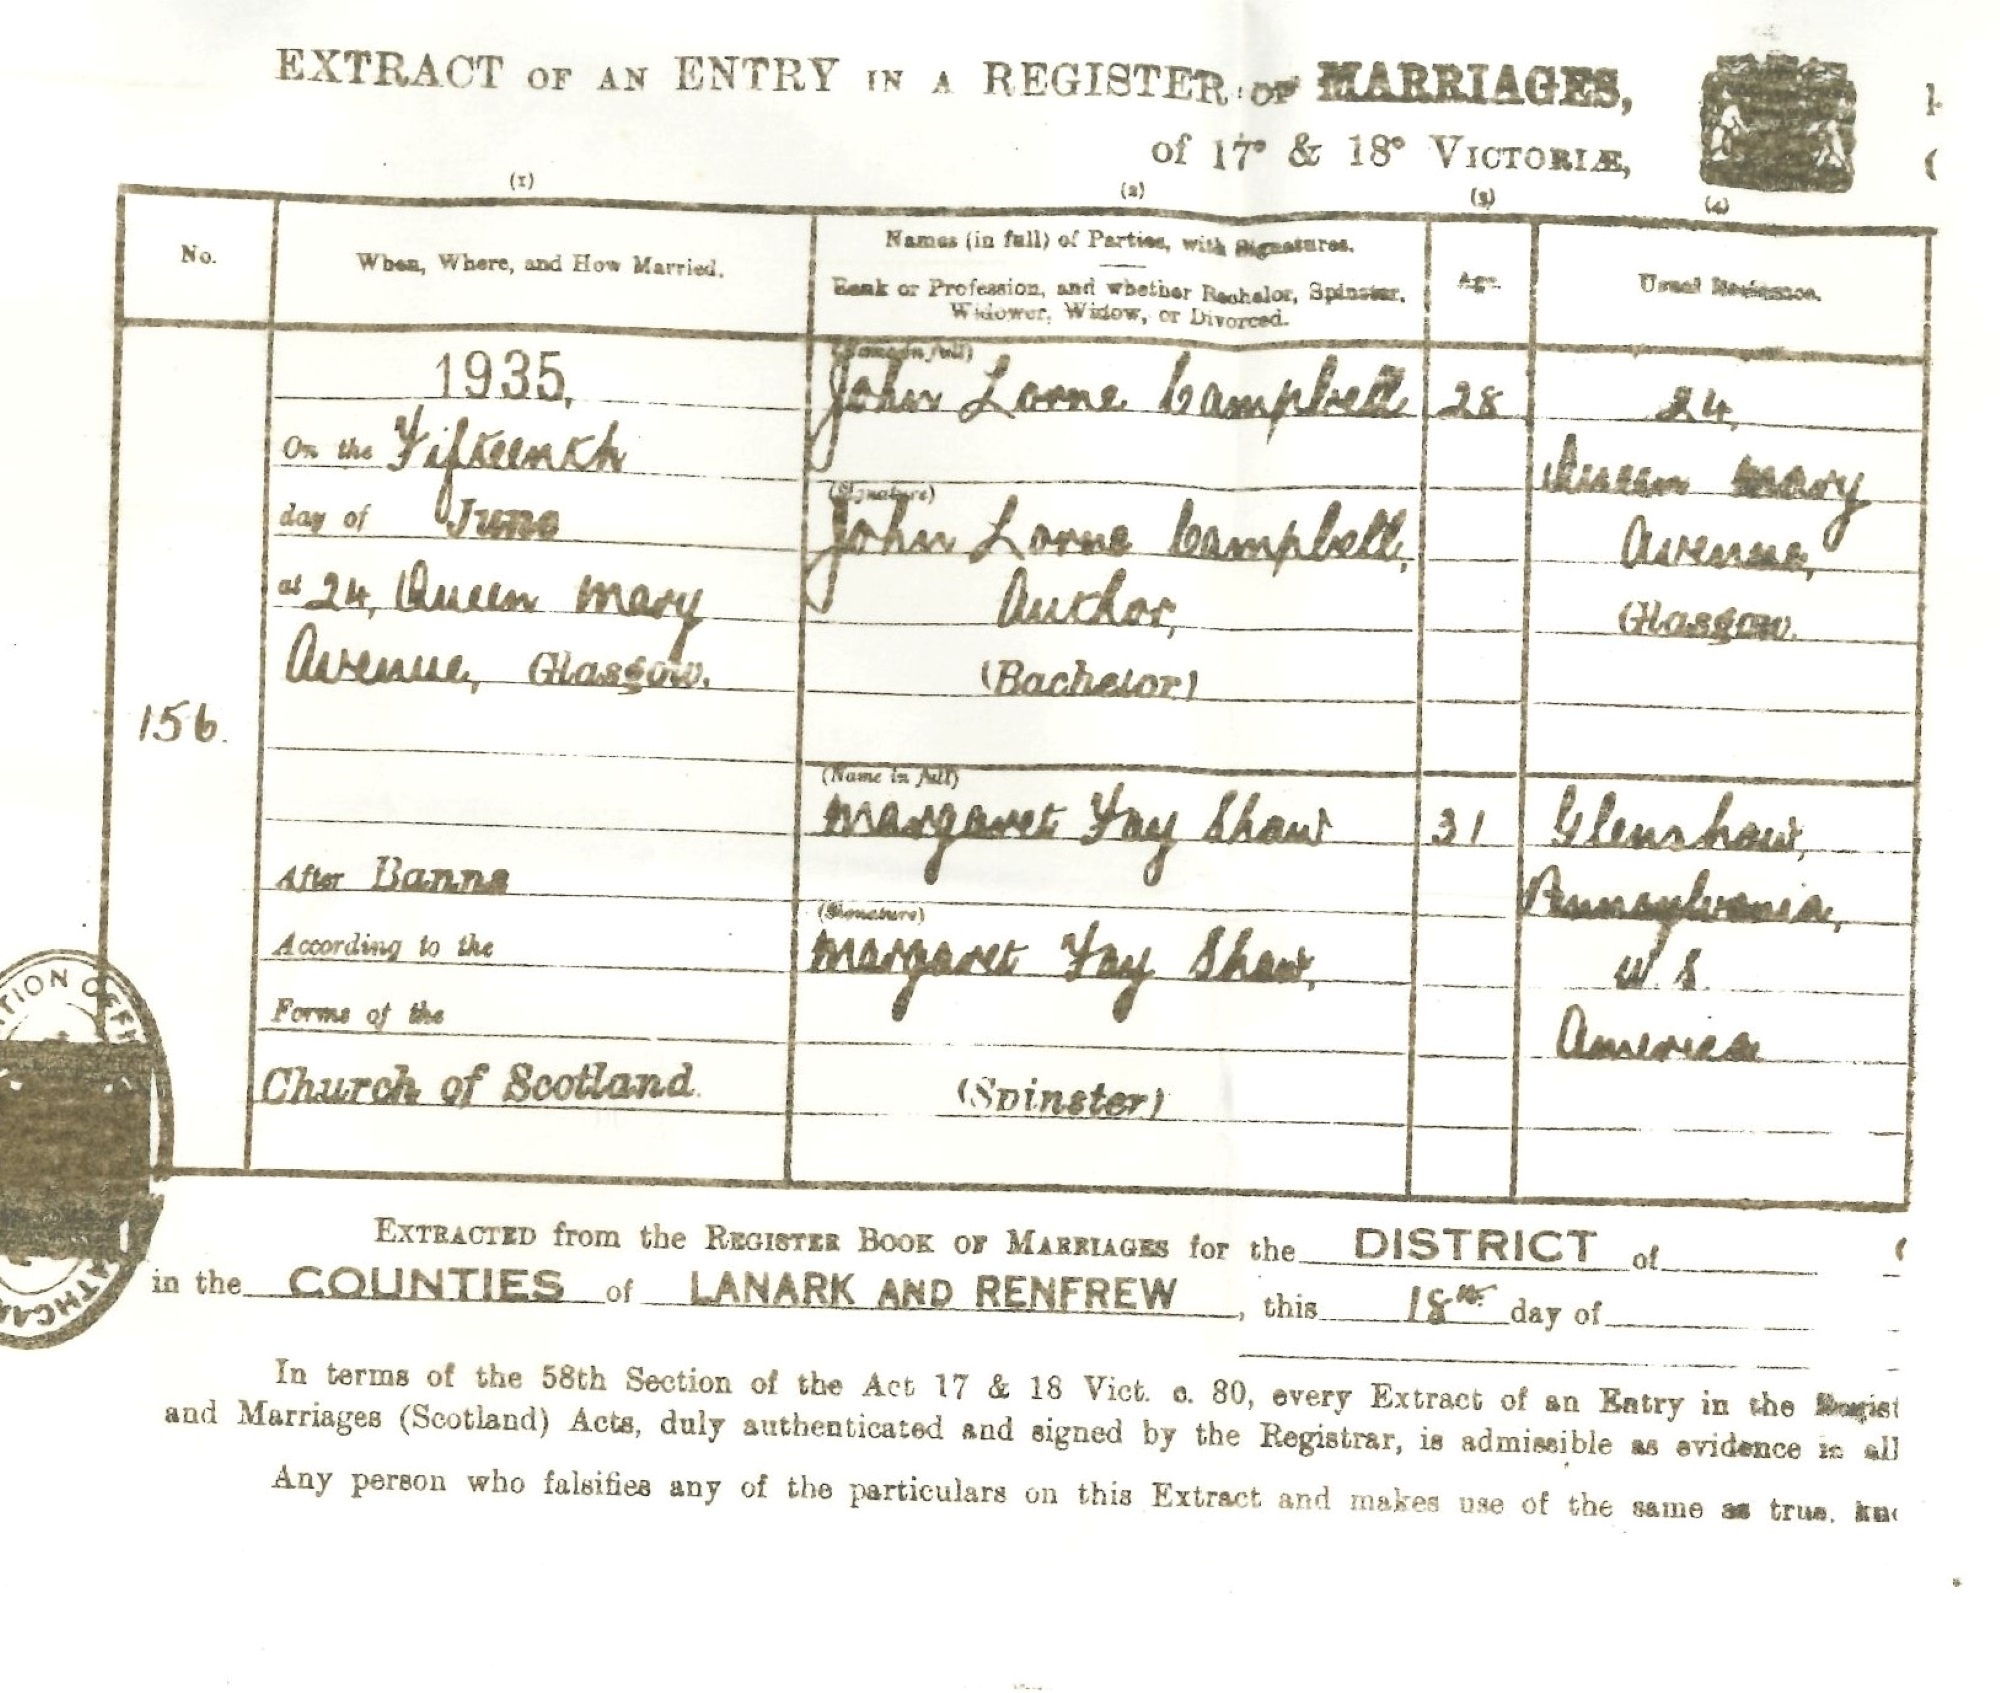 EXTRACT OF AN ENTRY IN A REGISTER OF MARRIAGES,
of 17° & 18° VICTORIÆ,
(1) (2) (3) (4)
No.
When, Where, and How Married.
Names (in full) of Parties, with Signatures.
Rank or Profession, and whether Bachelor, Spinster,
Widower, Widow, or Divorced.
Age.
Usual Residence.
156.
1935,
On the Fifteenth
day of June
at 24, Queen Mary
Avenue, Glasgow.
After Banns
According to the
Forms of the
Church of Scotland.
(Name in full)
John Lorne Campbell
(Signature)
John Lorne Campbell,
Author,
(Bachelor)
28
24,
Queen Mary
Avenue,
Glasgow.
(Name in full)
Margaret Fay Shaw
(Signature)
Margaret Fay Shaw,
(Spinster)
31
Glenshaw,
Pennsylvania,
U.S.
America
TION OFF
ATHCAR
EXTRACTED from the REGISTER BOOK OF MARRIAGES for the DISTRICT of
in the COUNTIES of LANARK AND RENFREW, this 18th day of
In terms of the 58th Section of the Act 17 & 18 Vict. c. 80, every Extract of an Entry in the Regist
and Marriages (Scotland) Acts, duly authenticated and signed by the Registrar, is admissible as evidence in all
Any person who falsifies any of the particulars on this Extract and makes use of the same as true, kno